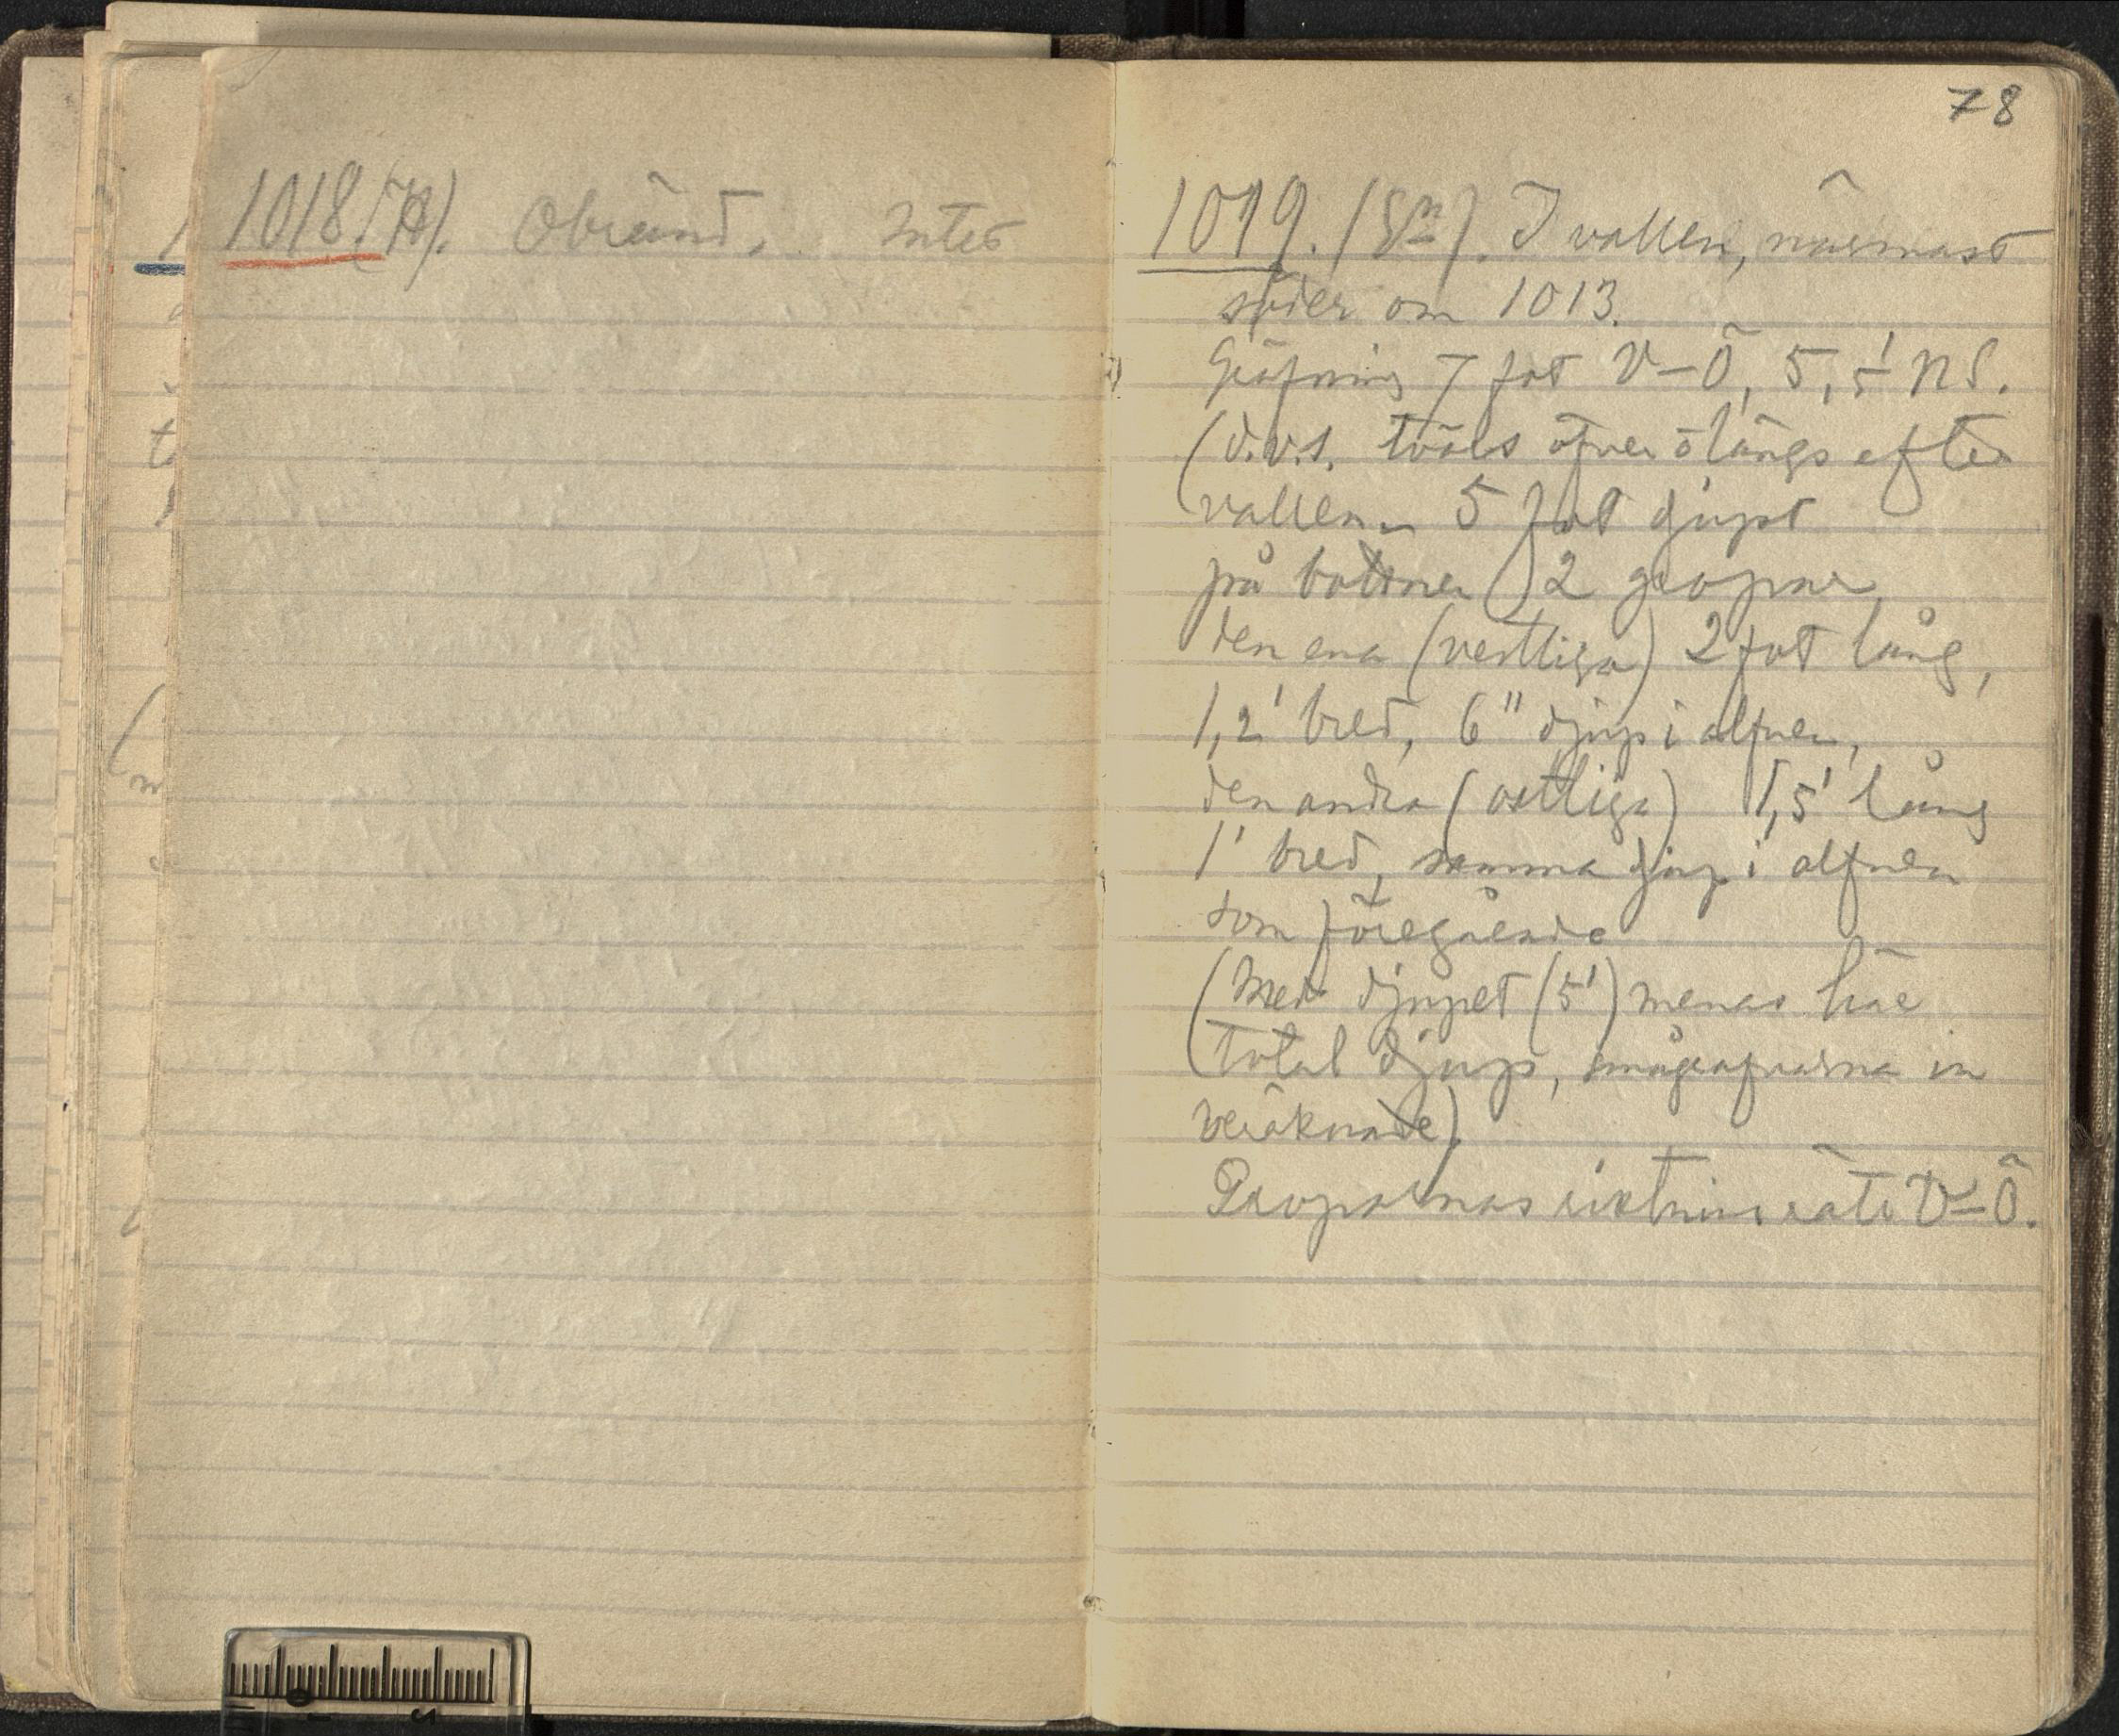 1018. (H). Obränd. Intet
78
1019. (Sn). I vallen, närmast
söder om 1013.
Gräfning 7 fot V–Ö, 5,5' NS.
(d.v.s. tvärs öfver o längs efter
vallen. 5 fot djupt
på bottnen 2 gropar
den ena (vestliga) 2 fot lång,
1,2' bred, 6" djup i alfven,
den andra (ostliga) 1,5' lång
1' bred, samma djup i alfven
som föregående
(Med djupet (5') menas här
total djup, smågrafvarna in
beräknade).
Groparnas riktning rätt V–Ö.